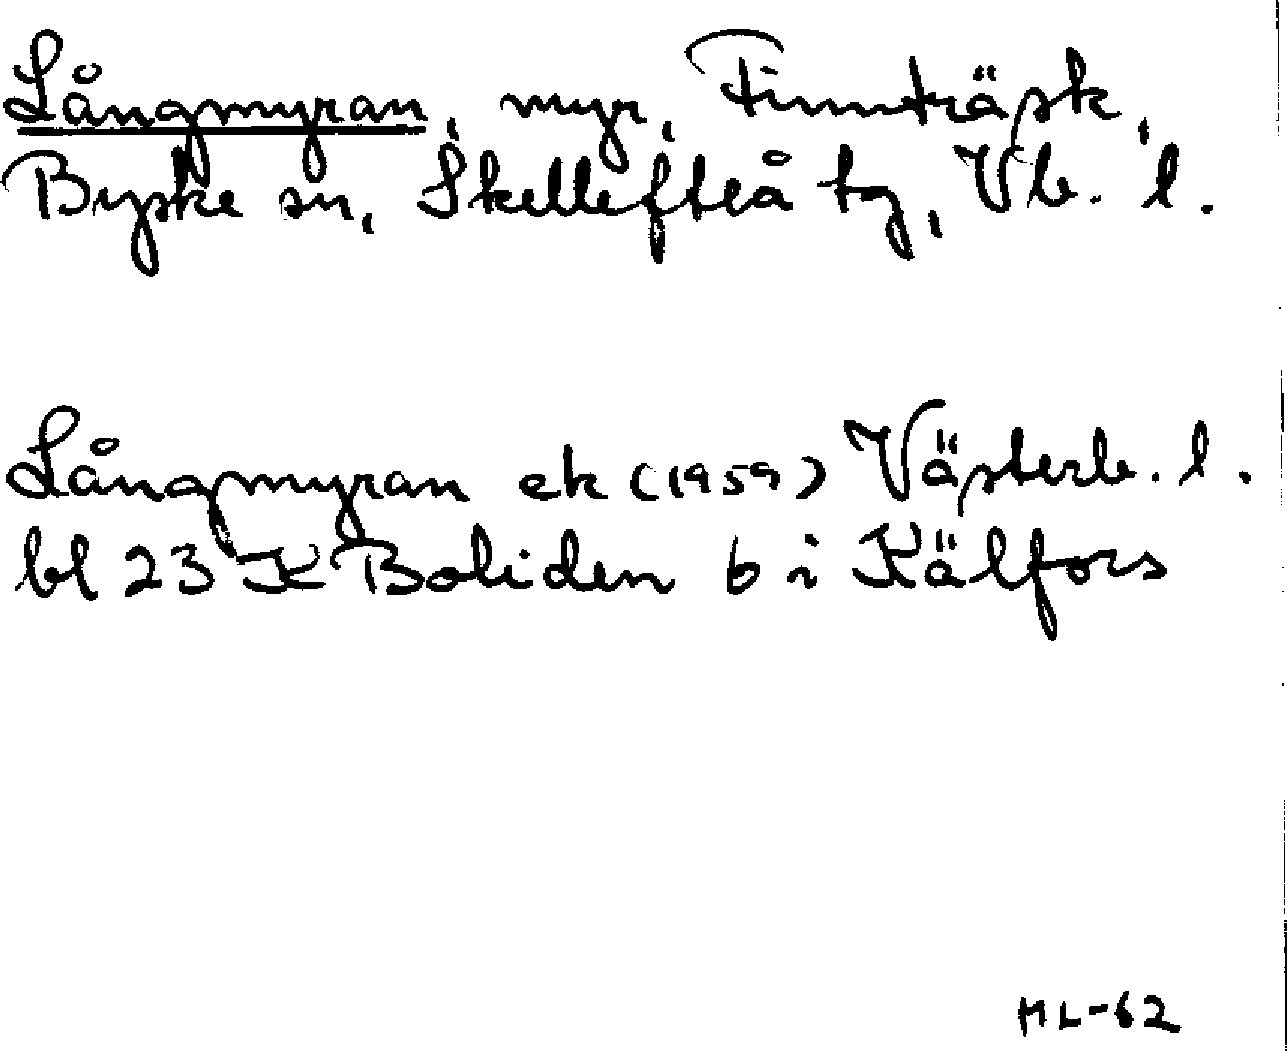 Långmyran, myr, Finnträsk,
Byske sn, Skellefteå tg, Vb. l.
Långmyran ek (1959) Västerb. l.
bl 23 K Boliden 6 i Kälfors
ML-62